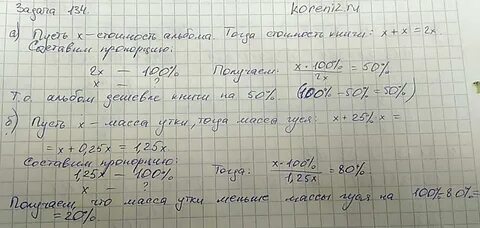 Задача 134.
koreniz.ru
а) Пусть x - стоимость альбома. Тогда стоимость книги: x + x = 2x.
Составим пропорцию:
2x — 100%    Получаем: x·100%/2x = 50%
x — ?
Т.о. альбом дешевле книги на 50%. (100% - 50% = 50%)
б) Пусть x - масса утки, тогда масса гуся: x + 25% x =
= x + 0,25x = 1,25x.
Составим пропорцию:
1,25x — 100%    Тогда: x·100%/1,25x = 80%.
x — ?
Получаем, что масса утки меньше массы гуся на 100%-80%=
= 20%.